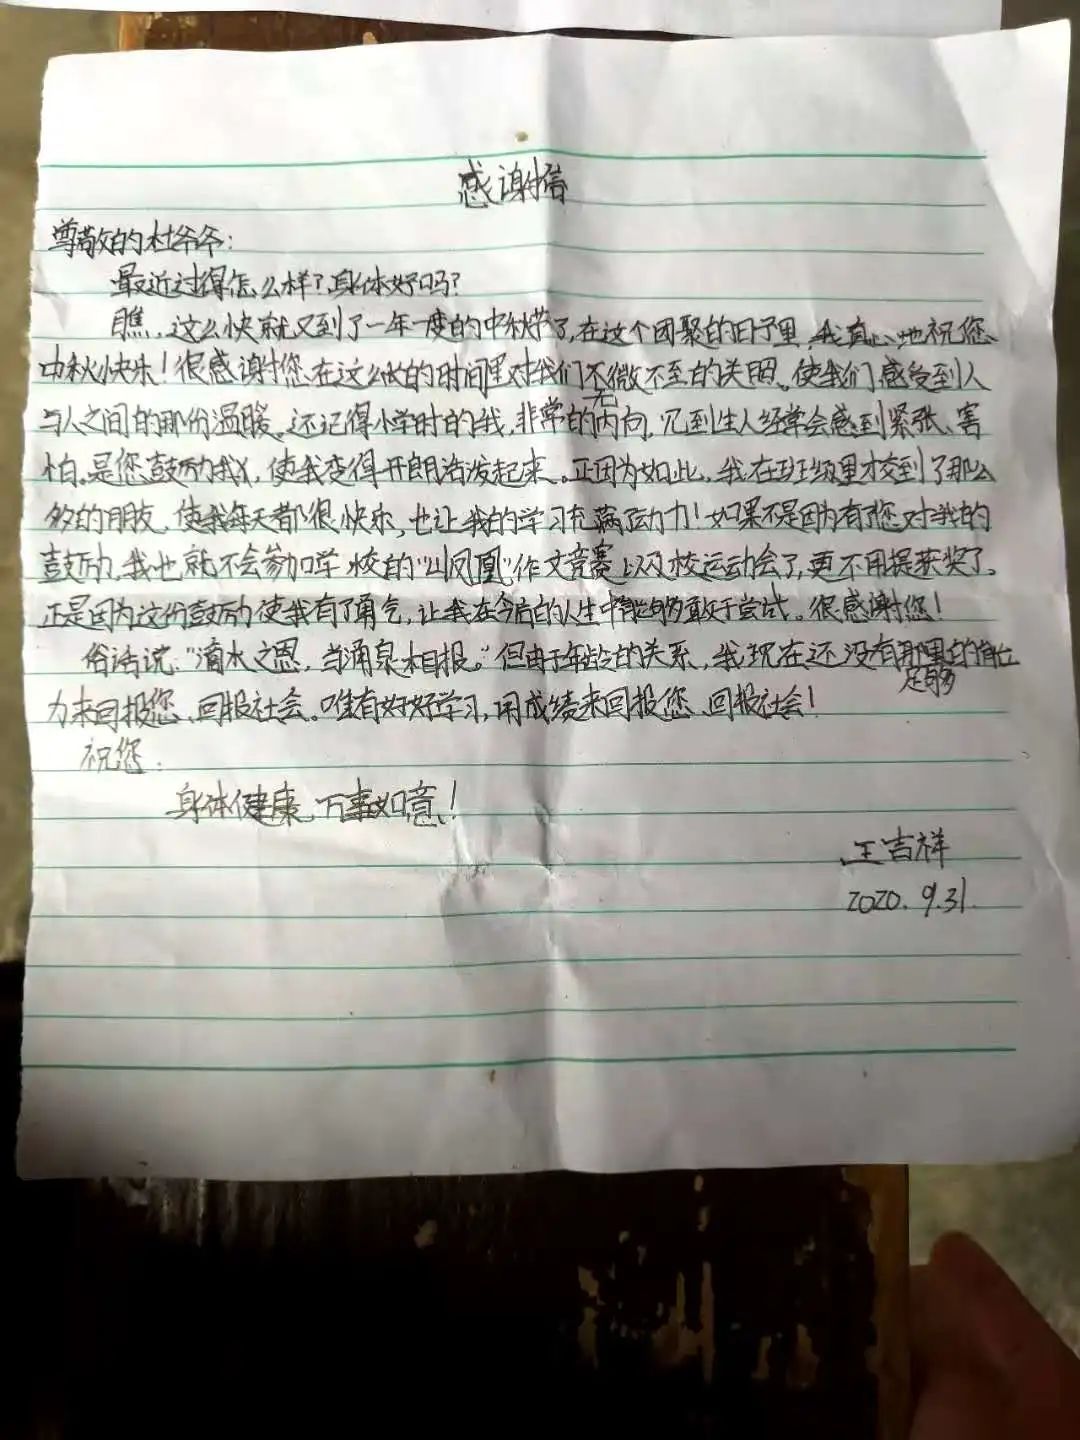 感谢信
尊敬的杜爷爷:
最近过得怎么样?身体好吗?
瞧,这么快就又到了一年一度的中秋节了,在这个团聚的日子里,我真心地祝您
中秋快乐!很感谢您在这么长的时间里对我们无微不至的关照。使我们感受到人
与人之间的那份温暖。还记得小学时的我,非常的内向,见到生人经常会感到紧张、害
怕。是您鼓励我,使我变得开朗活泼起来。正因为如此,我在班级里才交到了那么
多的朋友,使我每天都很快乐,也让我的学习充满了动力!如果不是因为有了您对我的
鼓励,我也就不会参加学校的“山凤凰”作文竞赛以及校运动会了,更不用提获奖了。
正是因为这份鼓励使我有了勇气,让我在今后的人生中能够敢于尝试。很感谢您!
俗话说:“滴水之恩,当涌泉相报。”但由于年龄的关系,我现在还没有足够的能
力来回报您、回报社会。唯有好好学习,用成绩来回报您、回报社会!
祝您:
身体健康,万事如意!
王吉祥
2020.9.31.